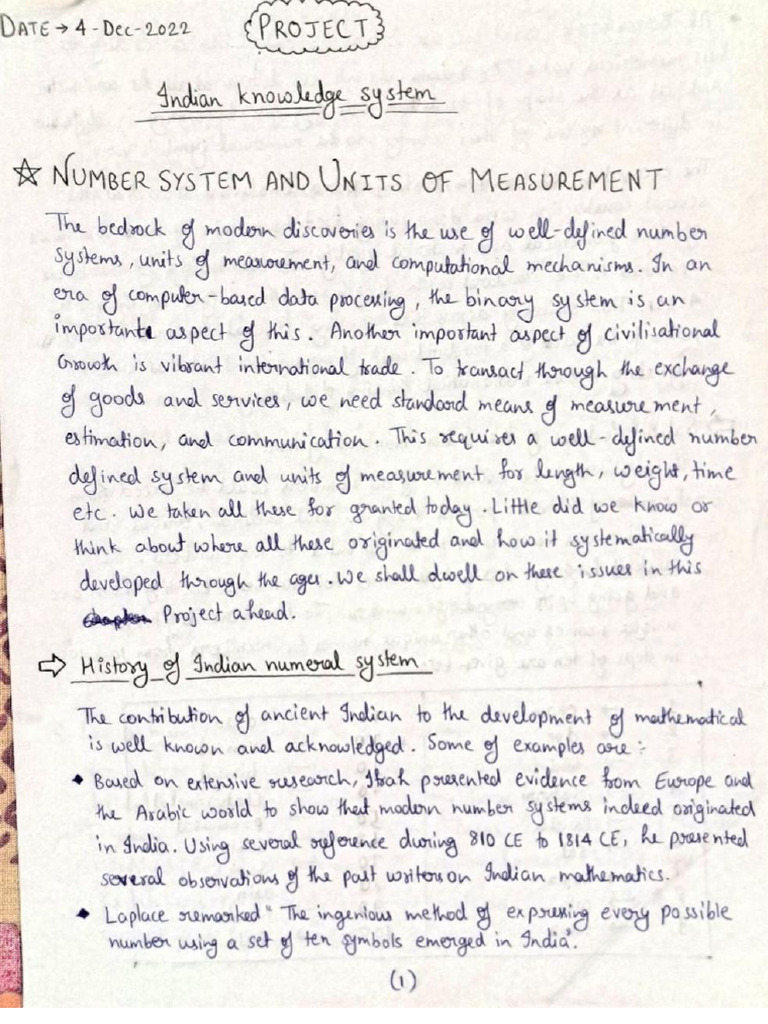 DATE → 4-Dec-2022
PROJECT
Indian knowledge system
☆ NUMBER SYSTEM AND UNITS OF MEASUREMENT
The bedrock of modern discoveries is the use of well-defined number
systems, units of measurement, and computational mechanisms. In an
era of computer-based data processing, the binary system is an
importante aspect of this. Another important aspect of civilisational
Growth is vibrant international trade. To transact through the exchange
of goods and services, we need standard means of measurement,
estimation, and communication. This requires a well-defined number
defined system and units of measurement for length, weight, time
etc. we taken all these for granted today. Little did we know or
think about where all these originated and how it systematically
developed through the ages. we shall dwell on these issues in this
Project ahead.
⇨ History of Indian numeral system
The contribution of ancient Indian to the development of mathematical
is well known and acknowledged. Some of examples are :-
• Based on extensive research, Ifrah presented evidence from Europe and
the Arabic world to show that modern number systems indeed originated
in India. Using several reference during 810 CE to 1814 CE, he presented
several observations of the past writers on Indian mathematics.
• Laplace remarked " The ingenious method of expressing every possible
number using a set of ten symbols emerged in India".
(1)